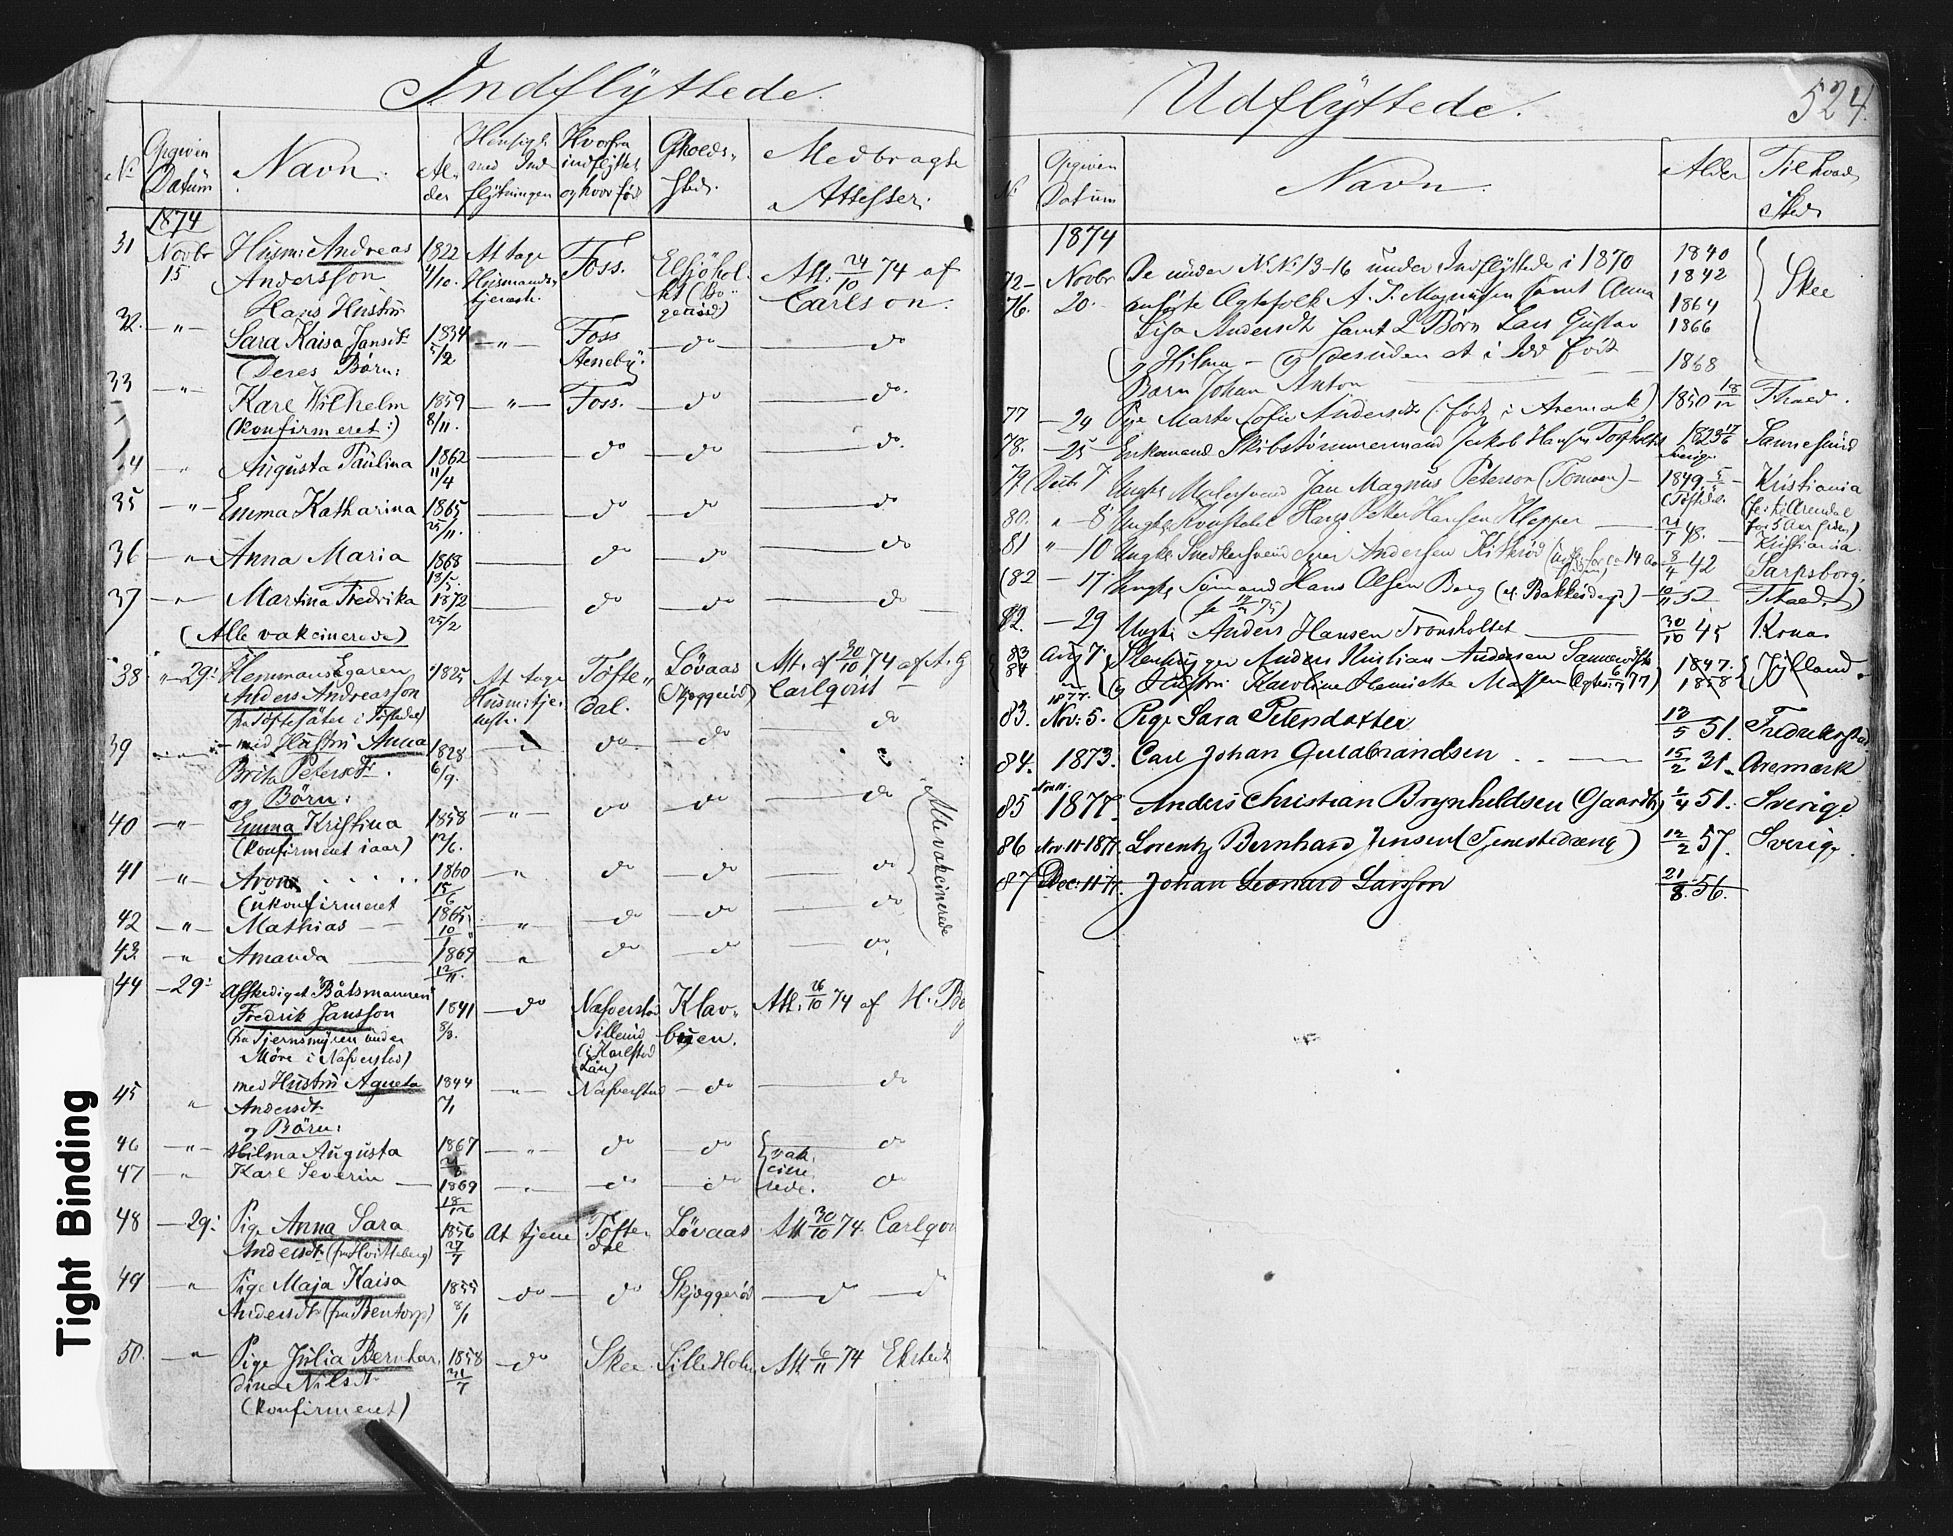 Indflÿttede.
No
Opgiven Datum
Navn.
Alder
Hensigt med Indflÿtningen
Hvorfra indflÿttet og hvor født
Opholdssted.
Medbragte Attester.
1874
31 Novbr 15 Husm: Andreas Andersson 1822 4/10. At tage Husmandstjeneste. Foss. Att. 24/10 74 af Carlson.
Hans Hustru
32. -"- Sara Kaisa Jansdt. 1834 5/2 -"- Foss do do
(Deres Børn:
33 -"- Karl Wilhelm 1859 8/11. -"- Foss. do do.
(konfirmeret:)
34 " Augusta Paulina 1862 11/4 do do do
35 -"- Emma Katharina 1865 25/11. do do do
36 -"- Anna Maria 1868 13/5. do do do
37 -"- Martina Fredrika 1872 25/2 do do do
(Alle vakcinerede)
38 "-29: Hemmansegaren Anders Andreasson 1825 At tage Husm:tjeneste. Töftedal. Løvaas (Skjeggerød) Att. af 30/10 74 af A. G Carlqvist
39 med Hustru Anna Brita Petersdt. 1828 6/9. do do do
og Børn:
40 -"- Emma Kristina 1858 12/6. -"- do do do
(konfirmeret i aar)
41 " Aron 1860 15/6 " do do do
(ukonfirmeret
42 -"- Mathias 1865 10/ -"- do do do
43. " Amanda 1869 12/11. " do do do
Alle vakcinerede
44 -29: Afskediget Båtsmannen Fredrik Jansson 1841 8/3. do Nafverstad Sillerud (i Karlstad Län) Klavbuen. Att: 26/10 74 af H. Be
(fra Tjernsmyren under Möre i Nafverstad)
45 " med Hustru Agneta Andersdt. 1844 7/1 " Nafverstad do do
og Børn:
46 -"- Hilma Augusta 1867 -"- do do do
47 " Karl Severin 1869 18/12 -"- do do do
{vakcinerede.
48 -29: Pige Anna Sara Andersdt. (fra Hvitteberg) 1856 27/7 At tjene Töftedal Løvaas Att 30/10 74. Carlqvi
49 " Pige Maja Kaisa Andersdt. (fra Bentorp) 1855 8/1 do do Skjeggerød do d
50. " Pige Julia Bernhardina Nilsdt. 1858 21/7 do Skee. Silleholm Att 6/11 74 Ekstedt
(konfirmeret)
Tight Binding
Udflÿttede.
524.
No
Opgiven Datum
Navn.
Alder
Til hvad Sted
1874
72-76. Novbr 20. De under N.N. 13-16 under Indflÿttede i 1870 1840
anførte Ægtefolk A. P. Magnusen samt Anna 1842 Skee
Lisa Andersdt. samt 2 Børn Lars Gustav 1864
og Hilma - og desuden et i Idd født 1866
Barn Johan Anton 1868
77 -24 Pige Marte Sofie Andersdt. (: født i Aremark) 1850 18/12 Fhald.
78. -25 Enkemand Skibstømmermand Jakob Hansen Torpholtet 1823 17/6 Sverige Sannesund
79 (Decbr 7 Ungk. Malersvend Jan Magnus Peterson (Tomasen) 1849 5/5 (Töftedal. Kristiania
(før til Arendal for 5 aar siden)
80. " - 8 Ungk. Konstabel Hans Petter Hansen Klepper 21/7 48. Kristiania
81 " - 10 Ungk. Snedkersvend Andersen Kirkrød 8/4 42 Sarpsborg.
(82 - 17 Ungk. Sømand Hans Olsen Berg (v. Bakkesdegd) 10/11 52 Fhald.)
82. - 29 Ungk. Anders Hansen Tronsholtet 30/10 45 Kraa
83 84 Aug 7. 1877. Anders Kristian Andersen Sannerød 1847. Jylland
og Hustru Karoline Henriette Madsen (Egtev. 6/7 77) 1858
83. Nov: 5. Pige Sara Petersdatter 13/5 51. Fredrikstad
84. 1873. Carl Johan Guldbrandsen 15/2 31. Aremark
85 Nov 11. 1877. Anders Christian Brynhildsen (Gaardbr) 2/4 51. Sverige
86 Nov 11 1877. Lorentz Bernhard Jensen (Tjenestedreng) 12/2 57. Sverige.
87 Dec: 11 77. Johan Leonard Larsson 21/8. 56.